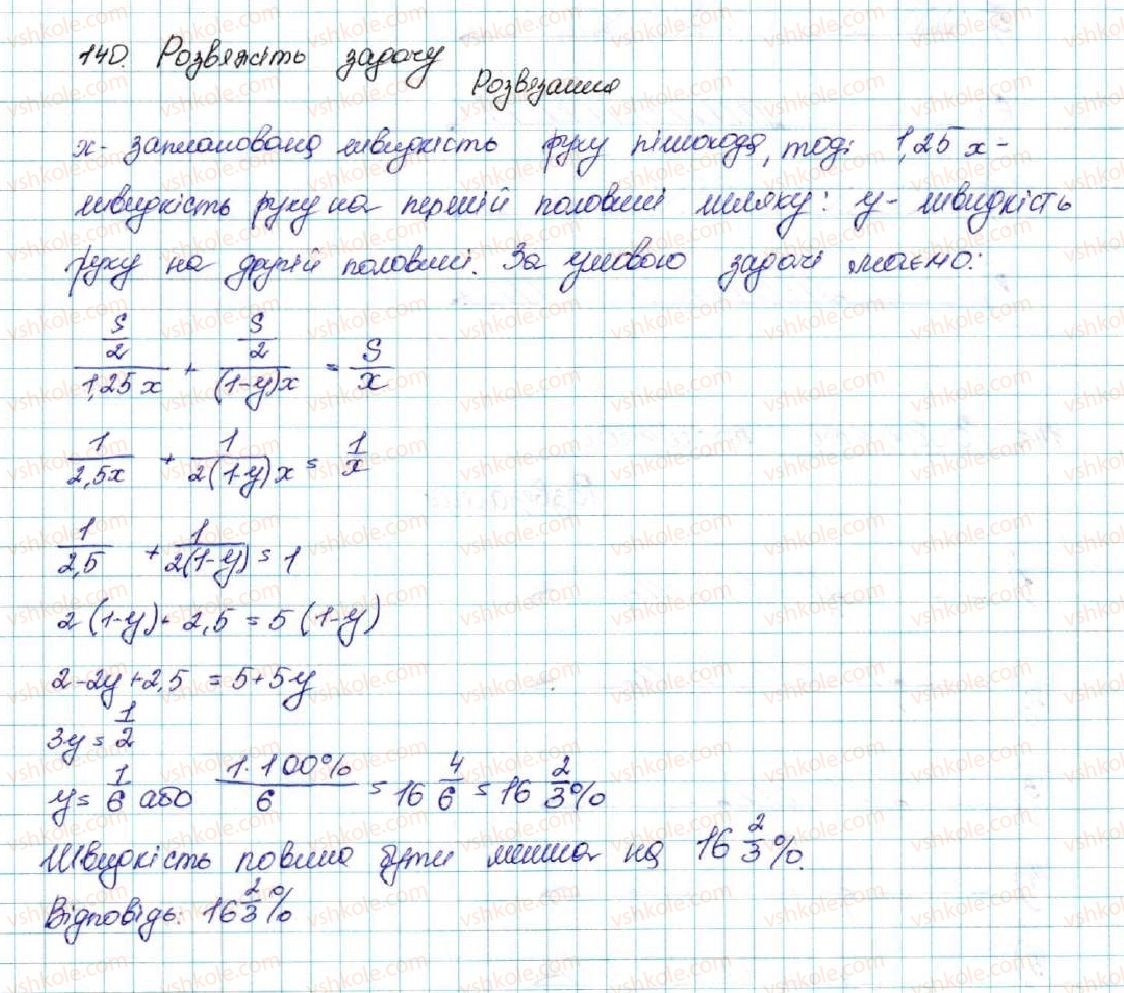 140. Розвяжіть задачу
Розвязання
x - запланована швидкість руху пішохода, тоді 1,25x -
швидкість руху на першій половині шляху: y - швидкість
руху на другій половині. За умовою задачі маємо:
(S/2)/(1,25x) + (S/2)/((1-y)x) = S/x
1/(2,5x) + 1/(2(1-y)x) = 1/x
1/2,5 + 1/(2(1-y)) = 1
2(1-y) + 2,5 = 5(1-y)
2-2y+2,5 = 5+5y
3y = 1/2
y = 1/6 або (1·100%)/6 = 16 4/6 = 16 2/3%
Швидкість повинна бути менша на 16 2/3%.
Відповідь: 16 2/3%
vshkole.com